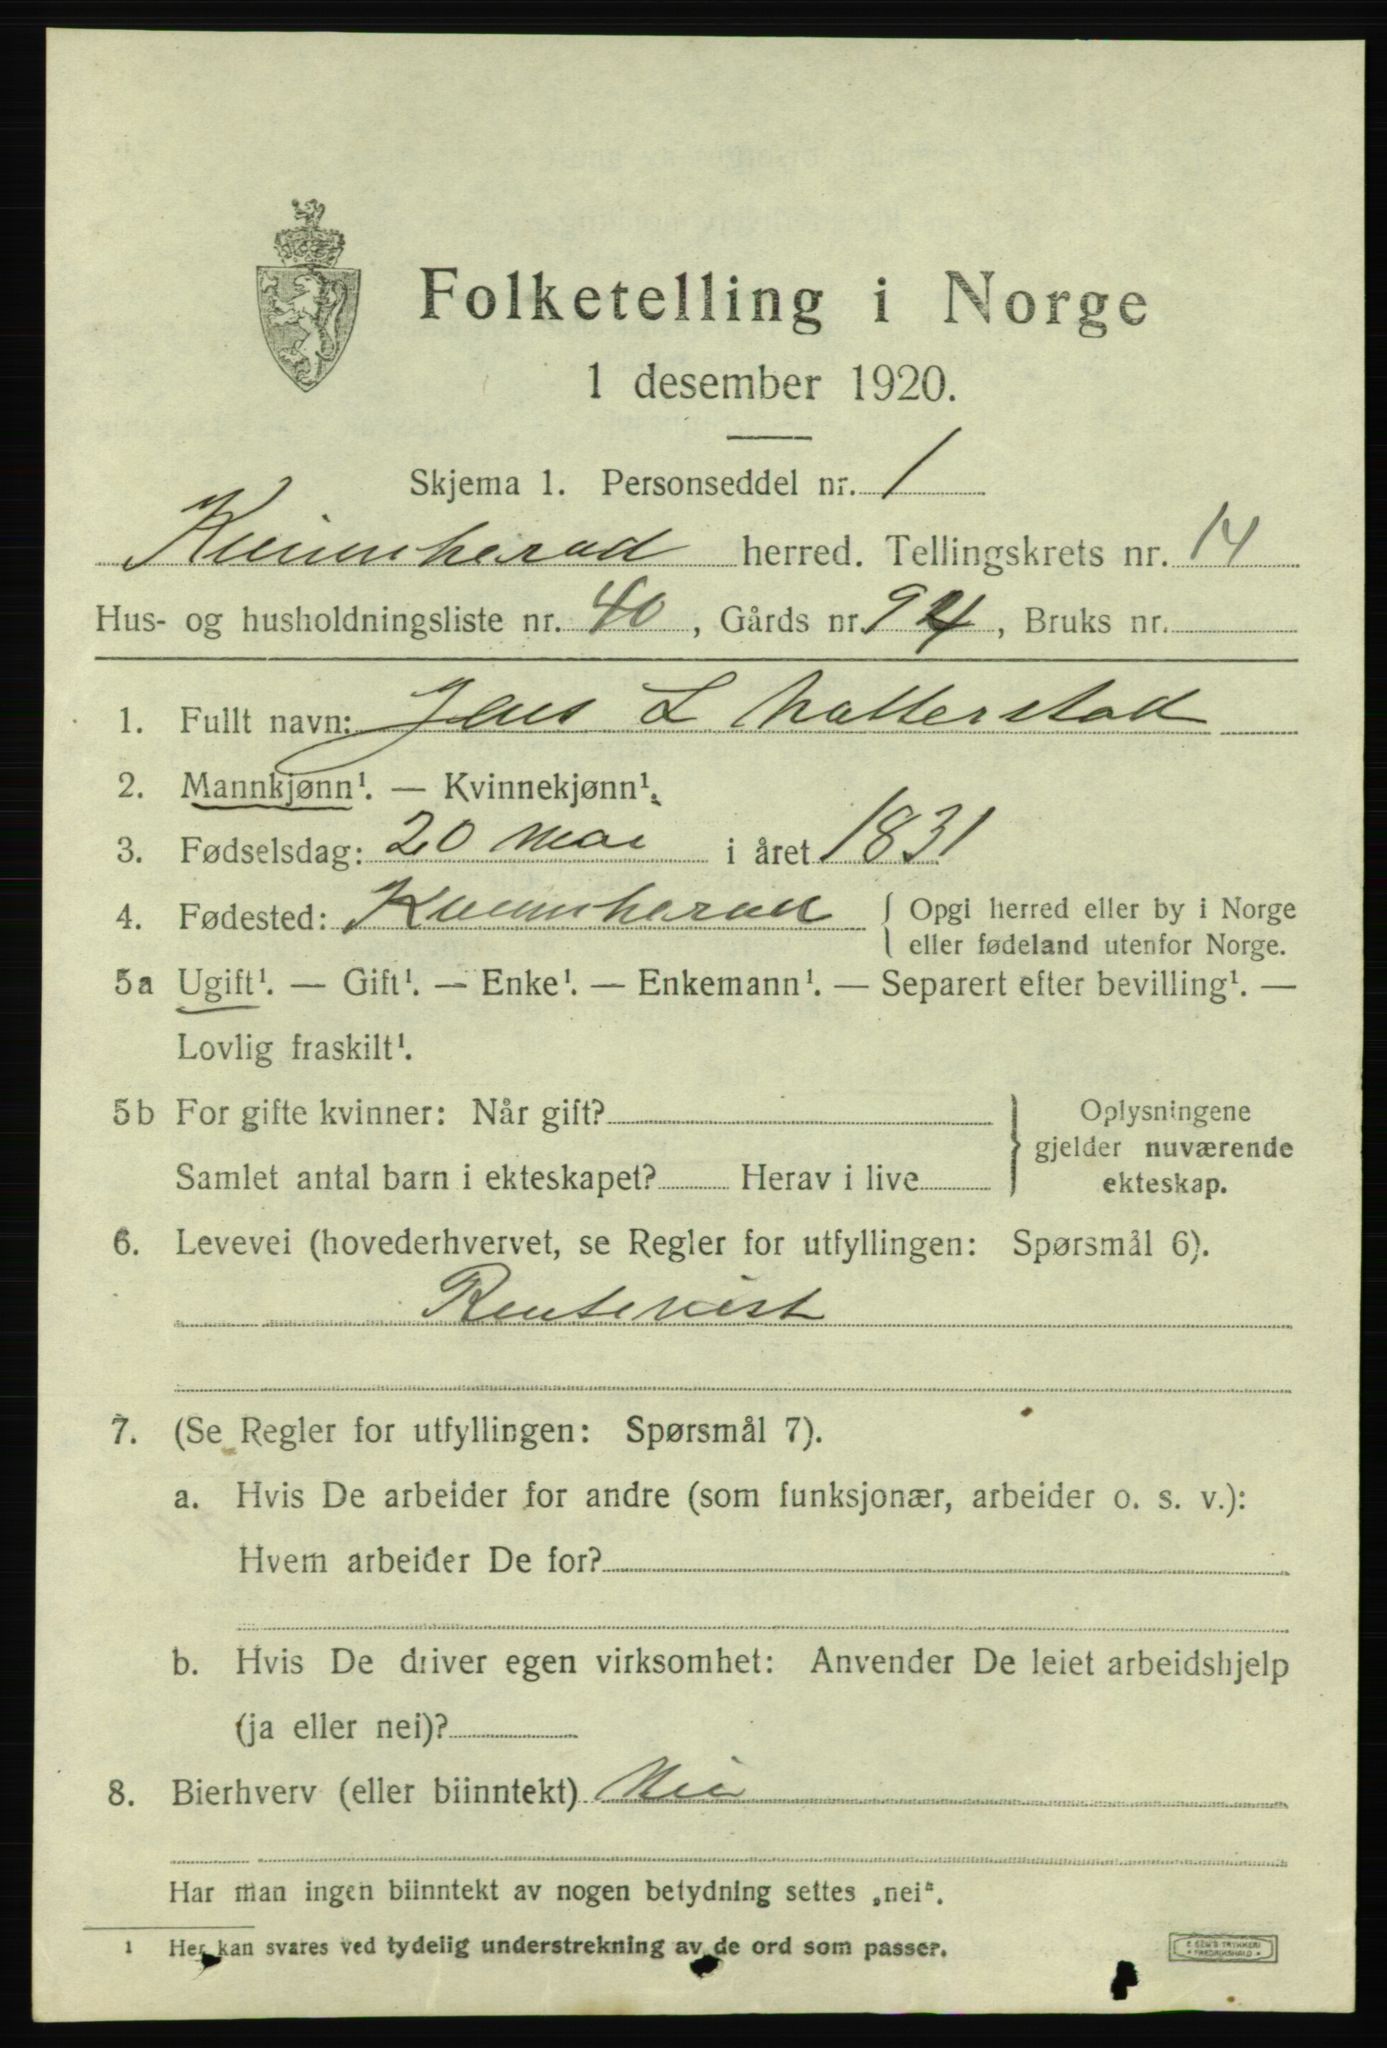 Folketelling i Norge
1 desember 1920.
Skjema 1. Personseddel nr. 1
Kvinnherad herred. Tellingskrets nr. 14
Hus- og husholdningsliste nr. 40, Gårds nr. 94, Bruks nr.
1. Fullt navn: Jens L
2. Mannkjønn¹. — Kvinnekjønn¹.
3. Fødselsdag: 20 mai i året 1831
4. Fødested: Kvinnherad { Opgi herred eller by i Norge
eller fødeland utenfor Norge.
5a Ugift¹. — Gift¹. — Enke¹. — Enkemann¹. — Separert efter bevilling¹. —
Lovlig fraskilt¹.
5b For gifte kvinner: Når gift? } Oplysningene
gjelder nuværende
Samlet antal barn i ekteskapet? Herav i live
ekteskap.
6. Levevei (hovederhvervet, se Regler for utfyllingen: Spørsmål 6).
Rentenist
7. (Se Regler for utfyllingen: Spørsmål 7).
a. Hvis De arbeider for andre (som funksjonær, arbeider o. s. v.):
Hvem arbeider De for?
b. Hvis De driver egen virksomhet: Anvender De leiet arbeidshjelp
(ja eller nei)?
8. Bierhverv (eller biinntekt) Nei
Har man ingen biinntekt av nogen betydning settes „nei“.
1 Her kan svares ved tydelig understrekning av de ord som passer.